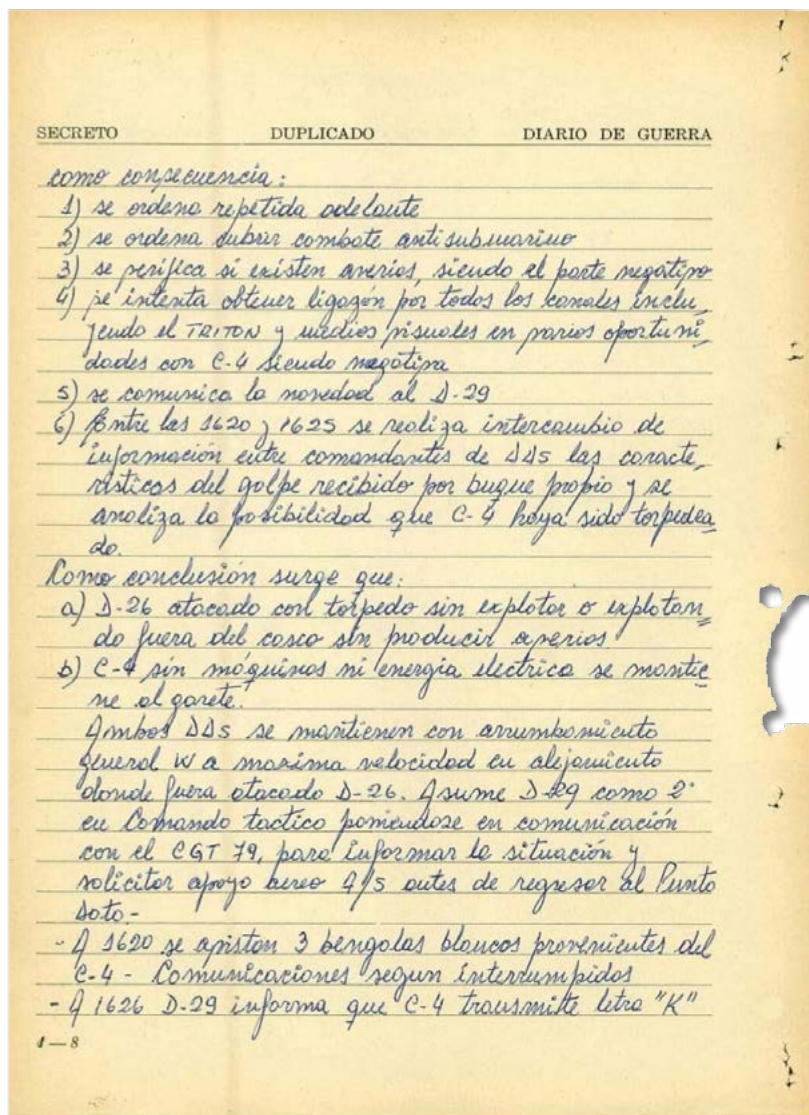 SECRETO DUPLICADO DIARIO DE GUERRA
como consecuencia:
1) se ordena repetida adelante
2) se ordena cubrir combate antisubmarino
3) se verifica si existen averias, siendo el parte negativo
4) se intenta obtener ligazón por todos los canales inclu_
yendo el TRITON y medios visuales en varios oportuni_
dades con C-4 siendo negativa
5) se comunica la novedad al D-29
6) Entre las 1620 y 1625 se realiza intercambio de
información entre comandantes de DDs las caracte_
risticas del golpe recibido por buque propio y se
analiza la posibilidad que C-4 haya sido torpedea
do.
Como conclusión surge que:
a) D-26 atacado con torpedo sin explotar o explotan=
do fuera del casco sin producir averias
b) C-4 sin máquinas ni energia electrica se mantie
ne al garete.
Ambos DDs se mantienen con arrumbamiento
general W a maxima velocidad en alejamiento
donde fuera atacado D-26. Asume D-29 como 2°
en Comando tactico poniendose en comunicación
con el CGT 79, para informar la situación y
solicitar apoyo aereo A/S antes de regresar al Punto
Dato.-
- A 1620 se avistan 3 bengalas blancas provenientes del
C-4 - Comunicaciones segun interrumpidas
- A 1626 D-29 informa que C-4 transmite letra "K"
4—8